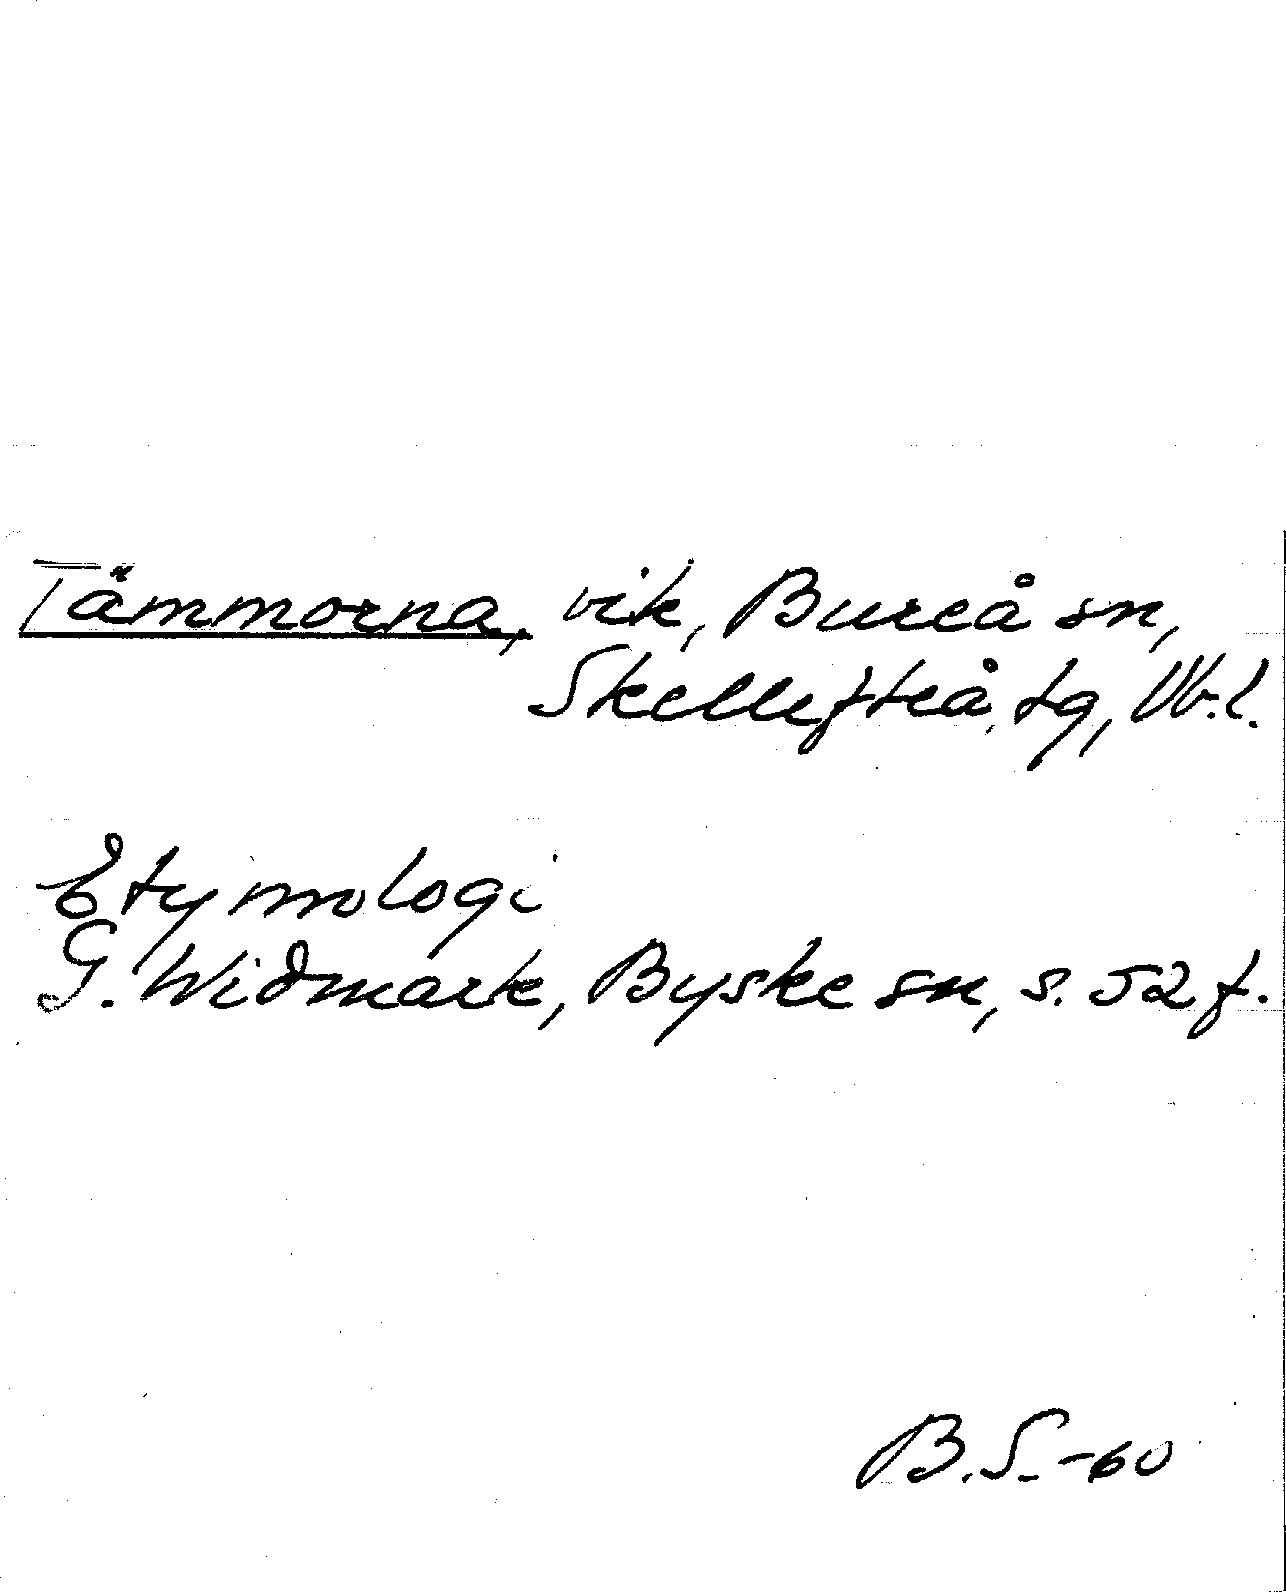 Tämmorna, vik, Bureå sn,
Skellefteå tg, Vb. l.
Etymologi
G. Widmark, Byske sn, s. 52 f.
B.S. -60